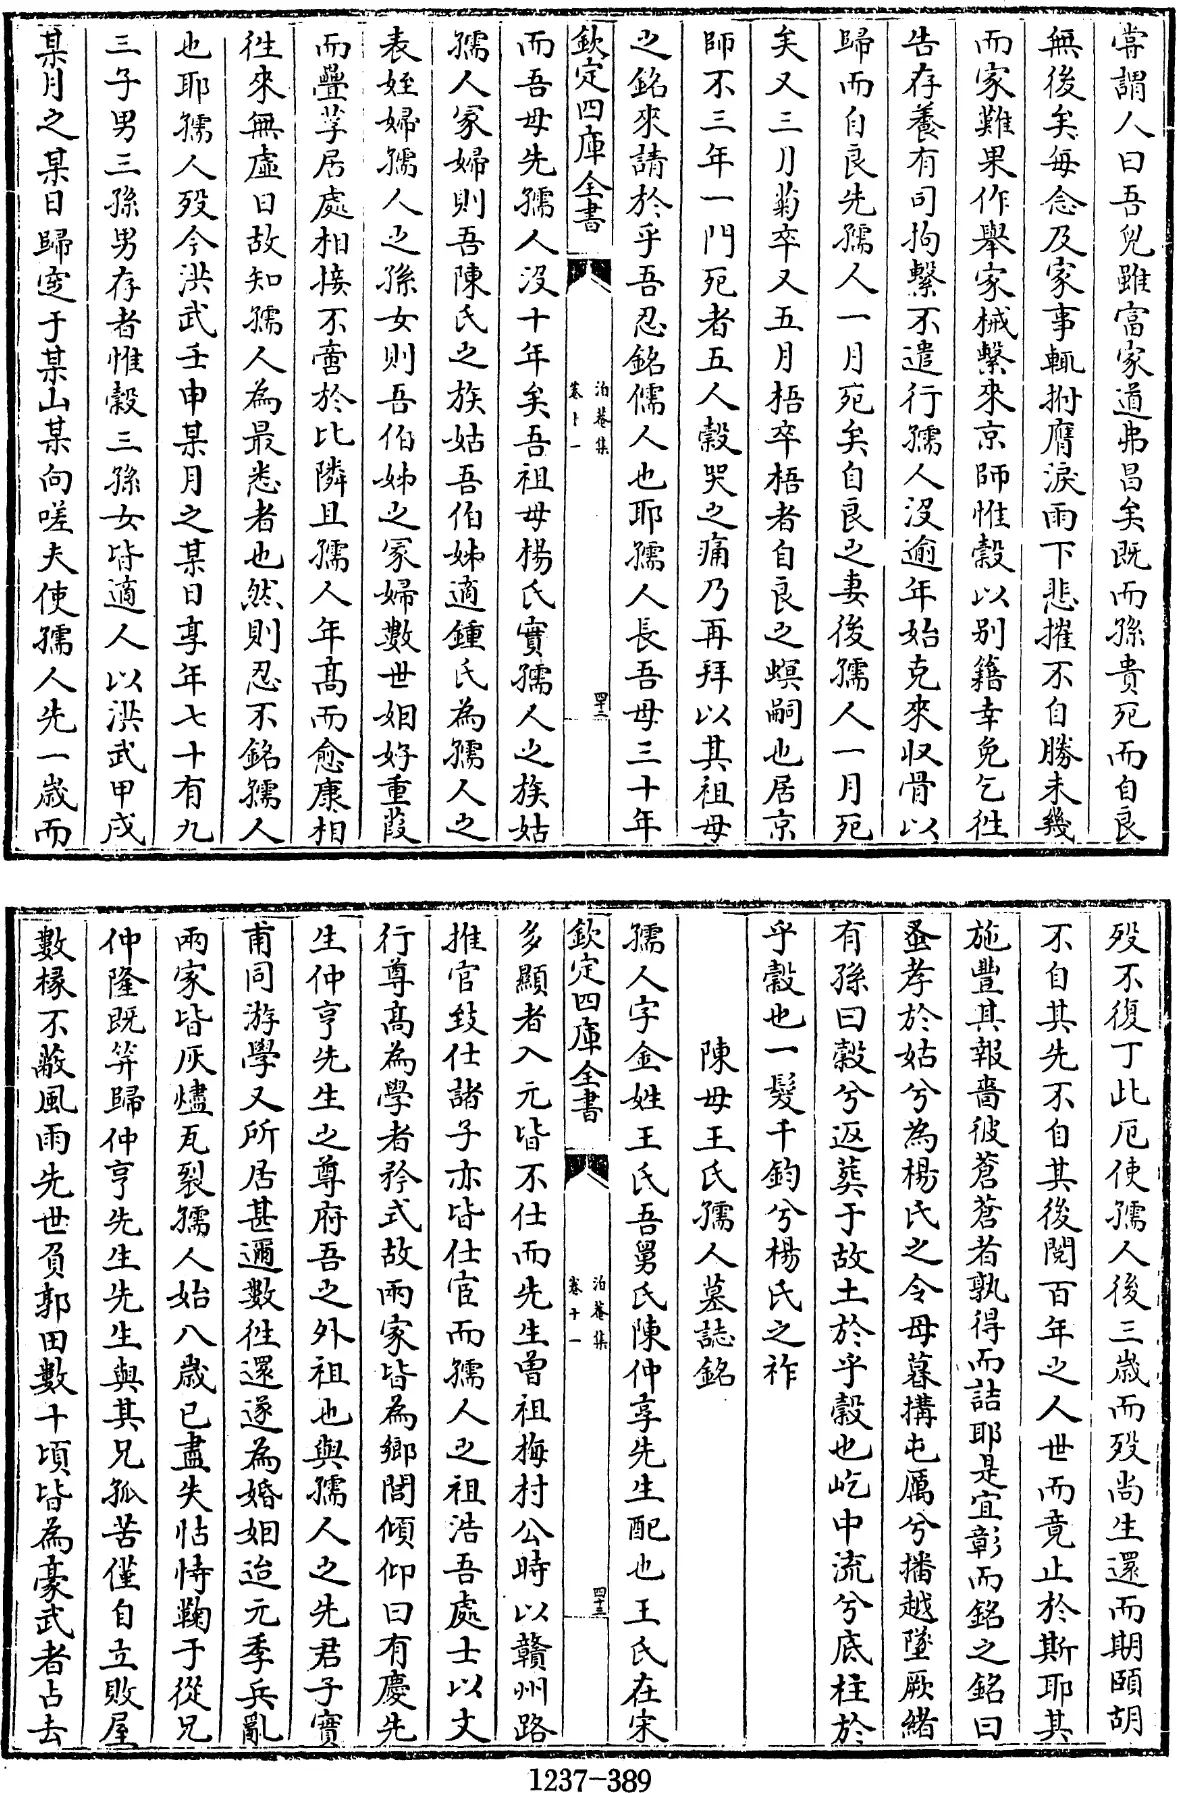 嘗謂人曰吾兒雖富家道弗昌矣既而孫貴死而自良
無後矣每念及家事輒拊膺淚雨下悲摧不自勝未幾
而家難果作舉家械繫來京師惟穀以别籍幸免乞徃
告存養有司拘繫不遣行孺人没逾年始克來収骨以
歸而自良先孺人一月死矣自良之妻後孺人一月死
矣又三月菊卒又五月梧卒梧者自良之螟嗣也居京
師不三年一門死者五人穀哭之痛乃再拜以其祖母
之銘來請於乎吾忍銘儒人也耶孺人長吾母三十年
欽定四庫全書
泊菴集
卷十一
四十二
而吾母先孺人没十年矣吾祖母楊氏實孺人之族姑
孺人冢婦則吾陳氏之族姑吾伯姊適鍾氏為孺人之
表姪婦孺人之孫女則吾伯姊之冢婦數世姻好重葭
而疊莩居處相接不啻於比隣且孺人年髙而愈康相
徃來無虛日故知孺人為最悉者也然則忍不銘孺人
也耶孺人殁今洪武壬申某月之某日享年七十有九
三子男三孫男存者惟穀三孫女皆適人以洪武甲戌
某月之某日歸窆于某山某向嗟夫使孺人先一歲而
殁不復丁此厄使孺人後三歲而殁尚生還而期頤胡
不自其先不自其後閱百年之人世而竟止於斯耶其
施豐其報嗇彼蒼蒼者孰得而詰耶是宜彰而銘之銘曰
蚤孝於姑兮為楊氏之令母暮搆屯厲兮播越墜厥緒
有孫曰穀兮返葬于故土於乎穀也屹中流兮底柱於
乎穀也一髮千鈞兮楊氏之祚
陳母王氏孺人墓誌銘
孺人字金姓王氏吾舅氏陳仲亨先生配也王氏在宋
欽定四庫全書
泊菴集
卷十一
四十三
多顯者入元皆不仕而先生曽祖梅村公時以贛州路
推官致仕諸子亦皆仕宦而孺人之祖浩吾處士以文
行尊髙為學者矜式故兩家皆為鄉閭傾仰曰有慶先
生仲亨先生之尊府吾之外祖也與孺人之先君子實
甫同游學又所居甚邇數徃還遂為婚姻迨元季兵亂
兩家皆灰燼瓦裂孺人始八歲已盡失怙恃鞠于從兄
仲隆既笄歸仲亨先生先生與其兄孤苦僅自立敗屋
數椽不蔽風雨先世負郭田數十頃皆為豪武者占去
1237-389